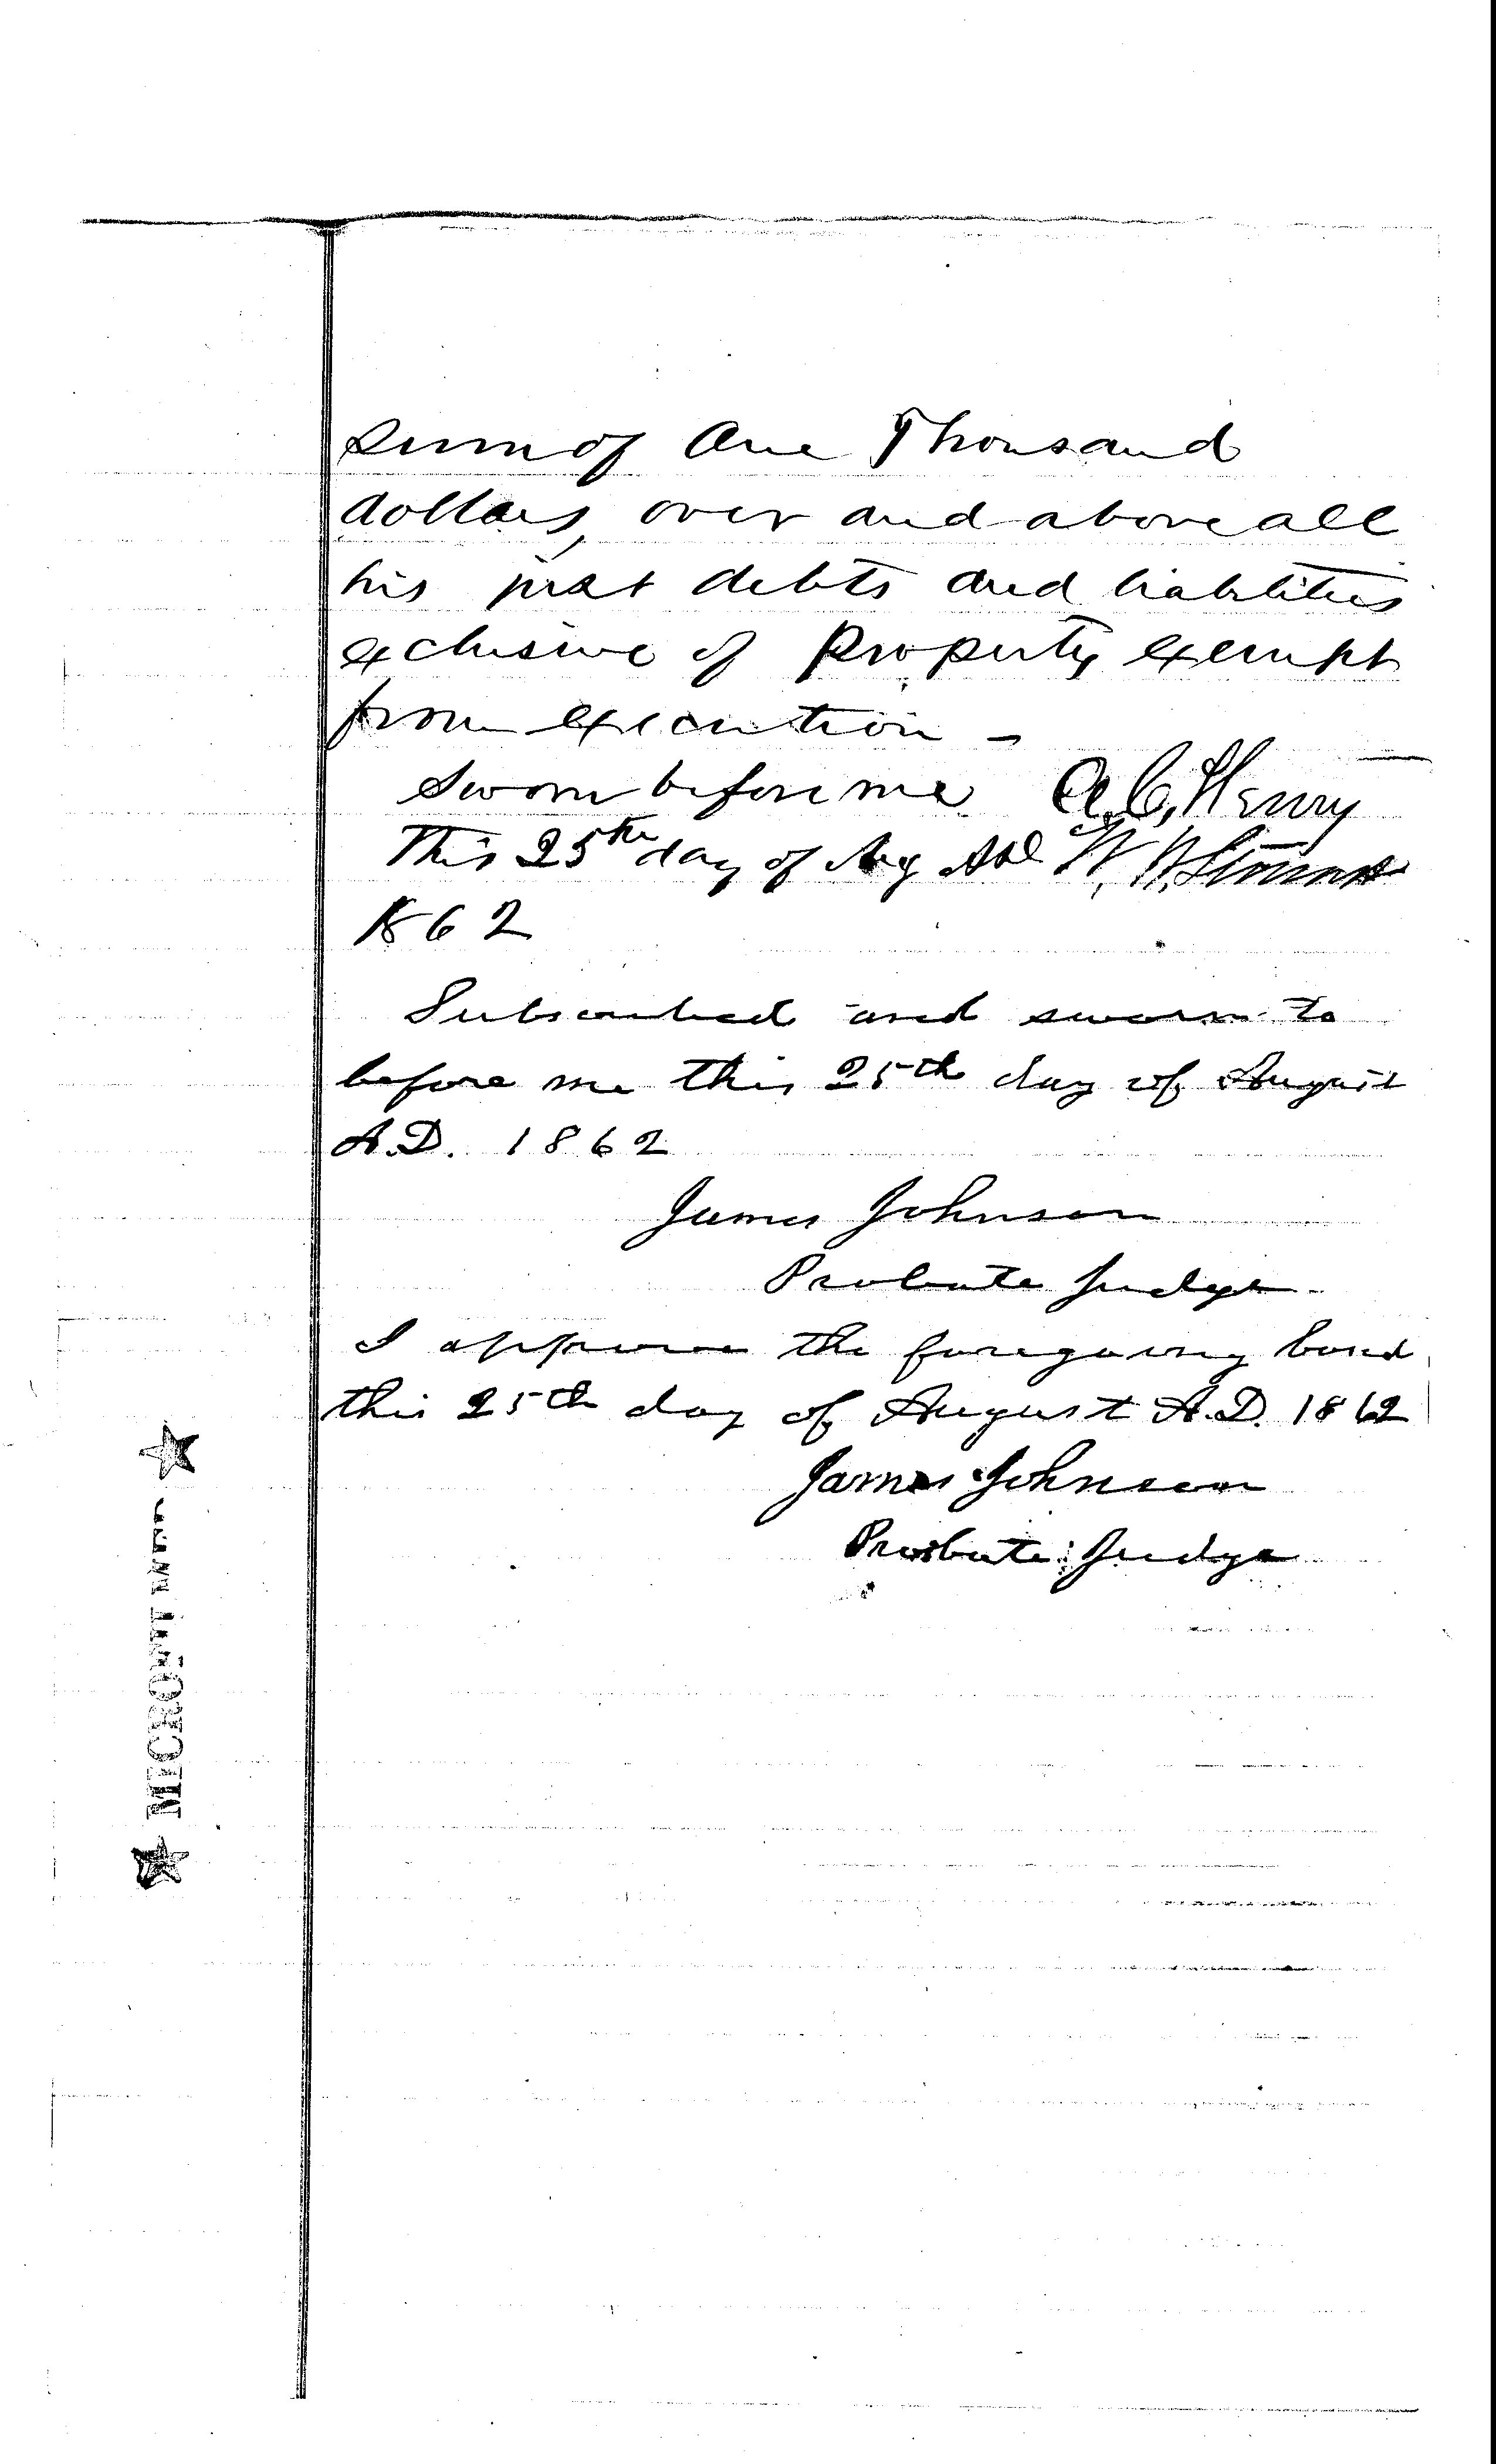 sum of One Thousand
dollars, over and above all
his just debts and liabilities
exclusive of Property exempt
from execution –
Sworn before me A. C. Henry
This 25th day of Aug AD W. W.
1862
Subscribed and sworn to
before me this 25th day of August
A.D. 1862
James Johnson
Probate Judge.
I approve the foregoing bond
this 25th day of August A.D. 1862
James Johnson
Probate Judge